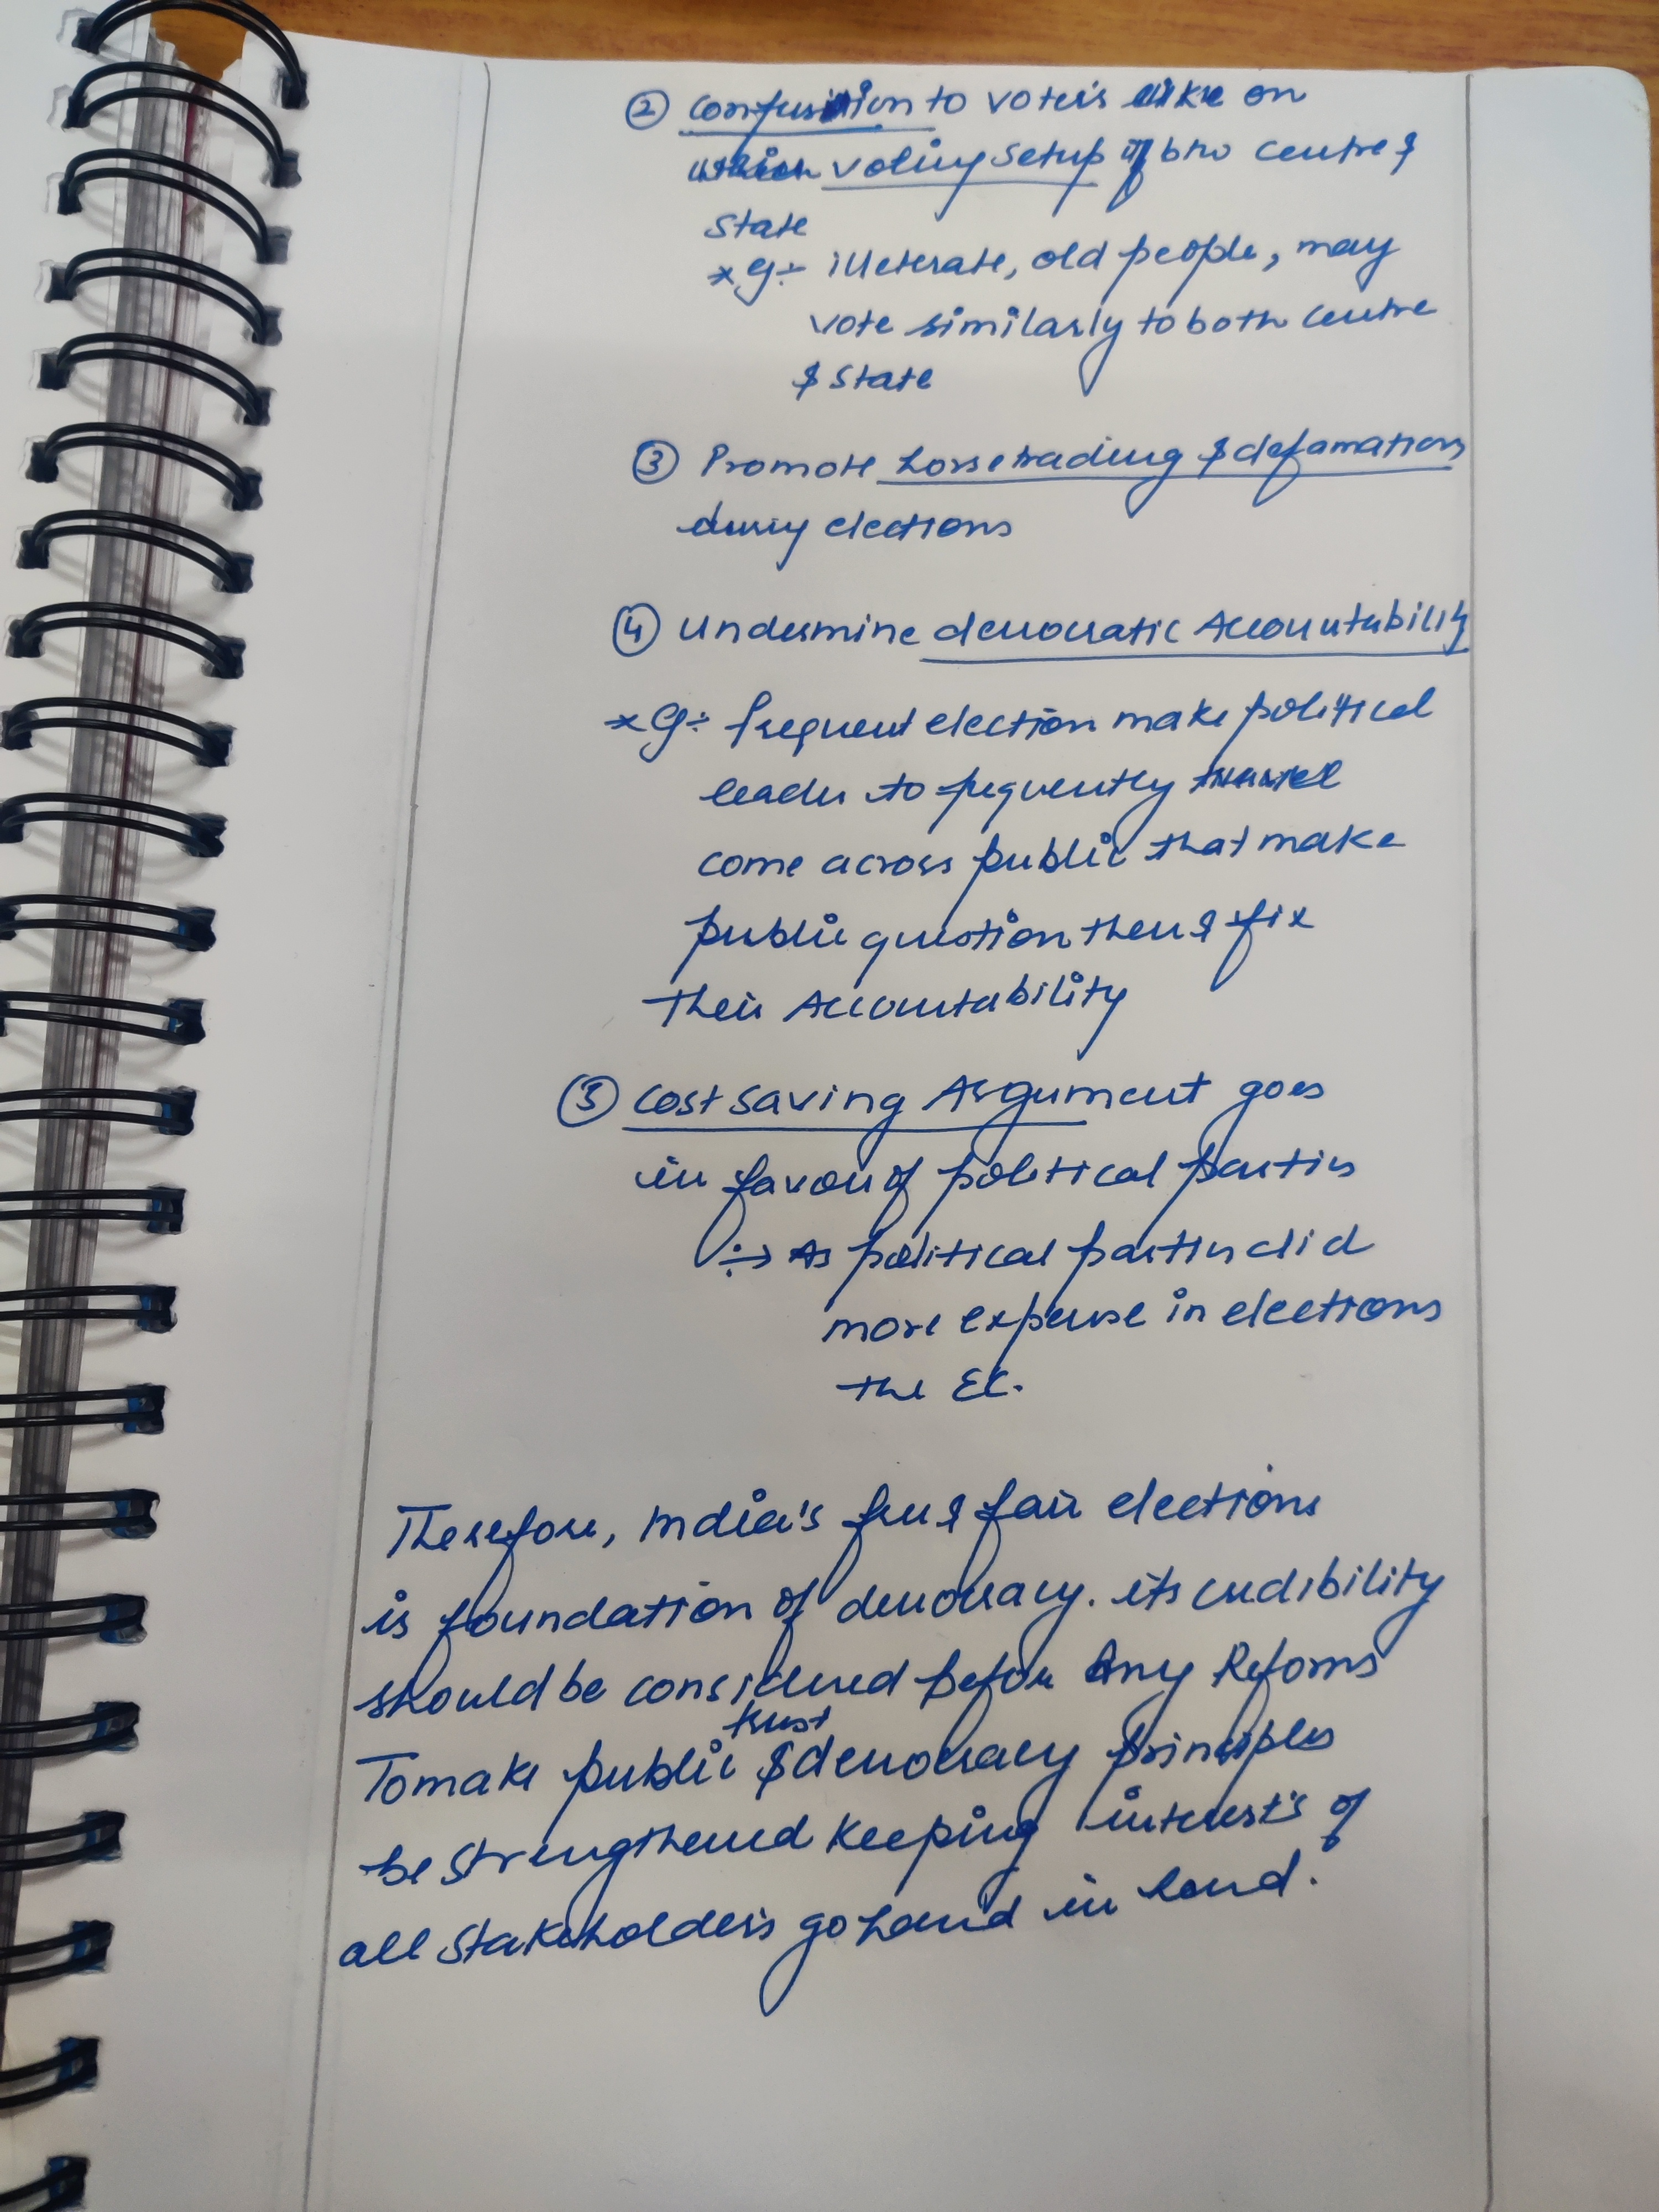 ② Confusion to voters like on
which voting setup of b/w centre &
State
*g:- illeterate, old people, may
vote similarly to both centre
& State
③ Promote horse trading & defamations
during elections
④ Undermine democratic Accountability
*g:- frequent election make political
leader to frequently
come across public that make
public question them & fix
their Accountability
⑤ Cost saving Argument goes
in favour of political parties
:→ As political parties did
more expense in elections
the EC.
Therefore, India's free & fair elections
is foundation of democracy. its credibility
should be considered before Any Reforms
trust
To make public & democracy principles
be strengthened keeping interest's of
all Stakeholders go hand in hand.